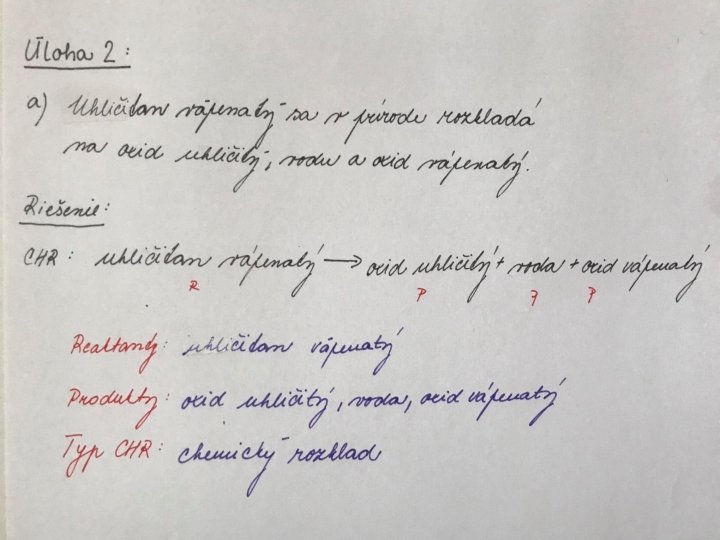 Úloha 2:
a) Uhličitan vápenatý sa v prírode rozkladá
na oxid uhličitý, vodu a oxid vápenatý.
Riešenie:
CHR: uhličitan vápenatý → oxid uhličitý + voda + oxid vápenatý
R P P P
Reaktanty: uhličitan vápenatý
Produkty: oxid uhličitý, voda, oxid vápenatý
Typ CHR: chemický rozklad